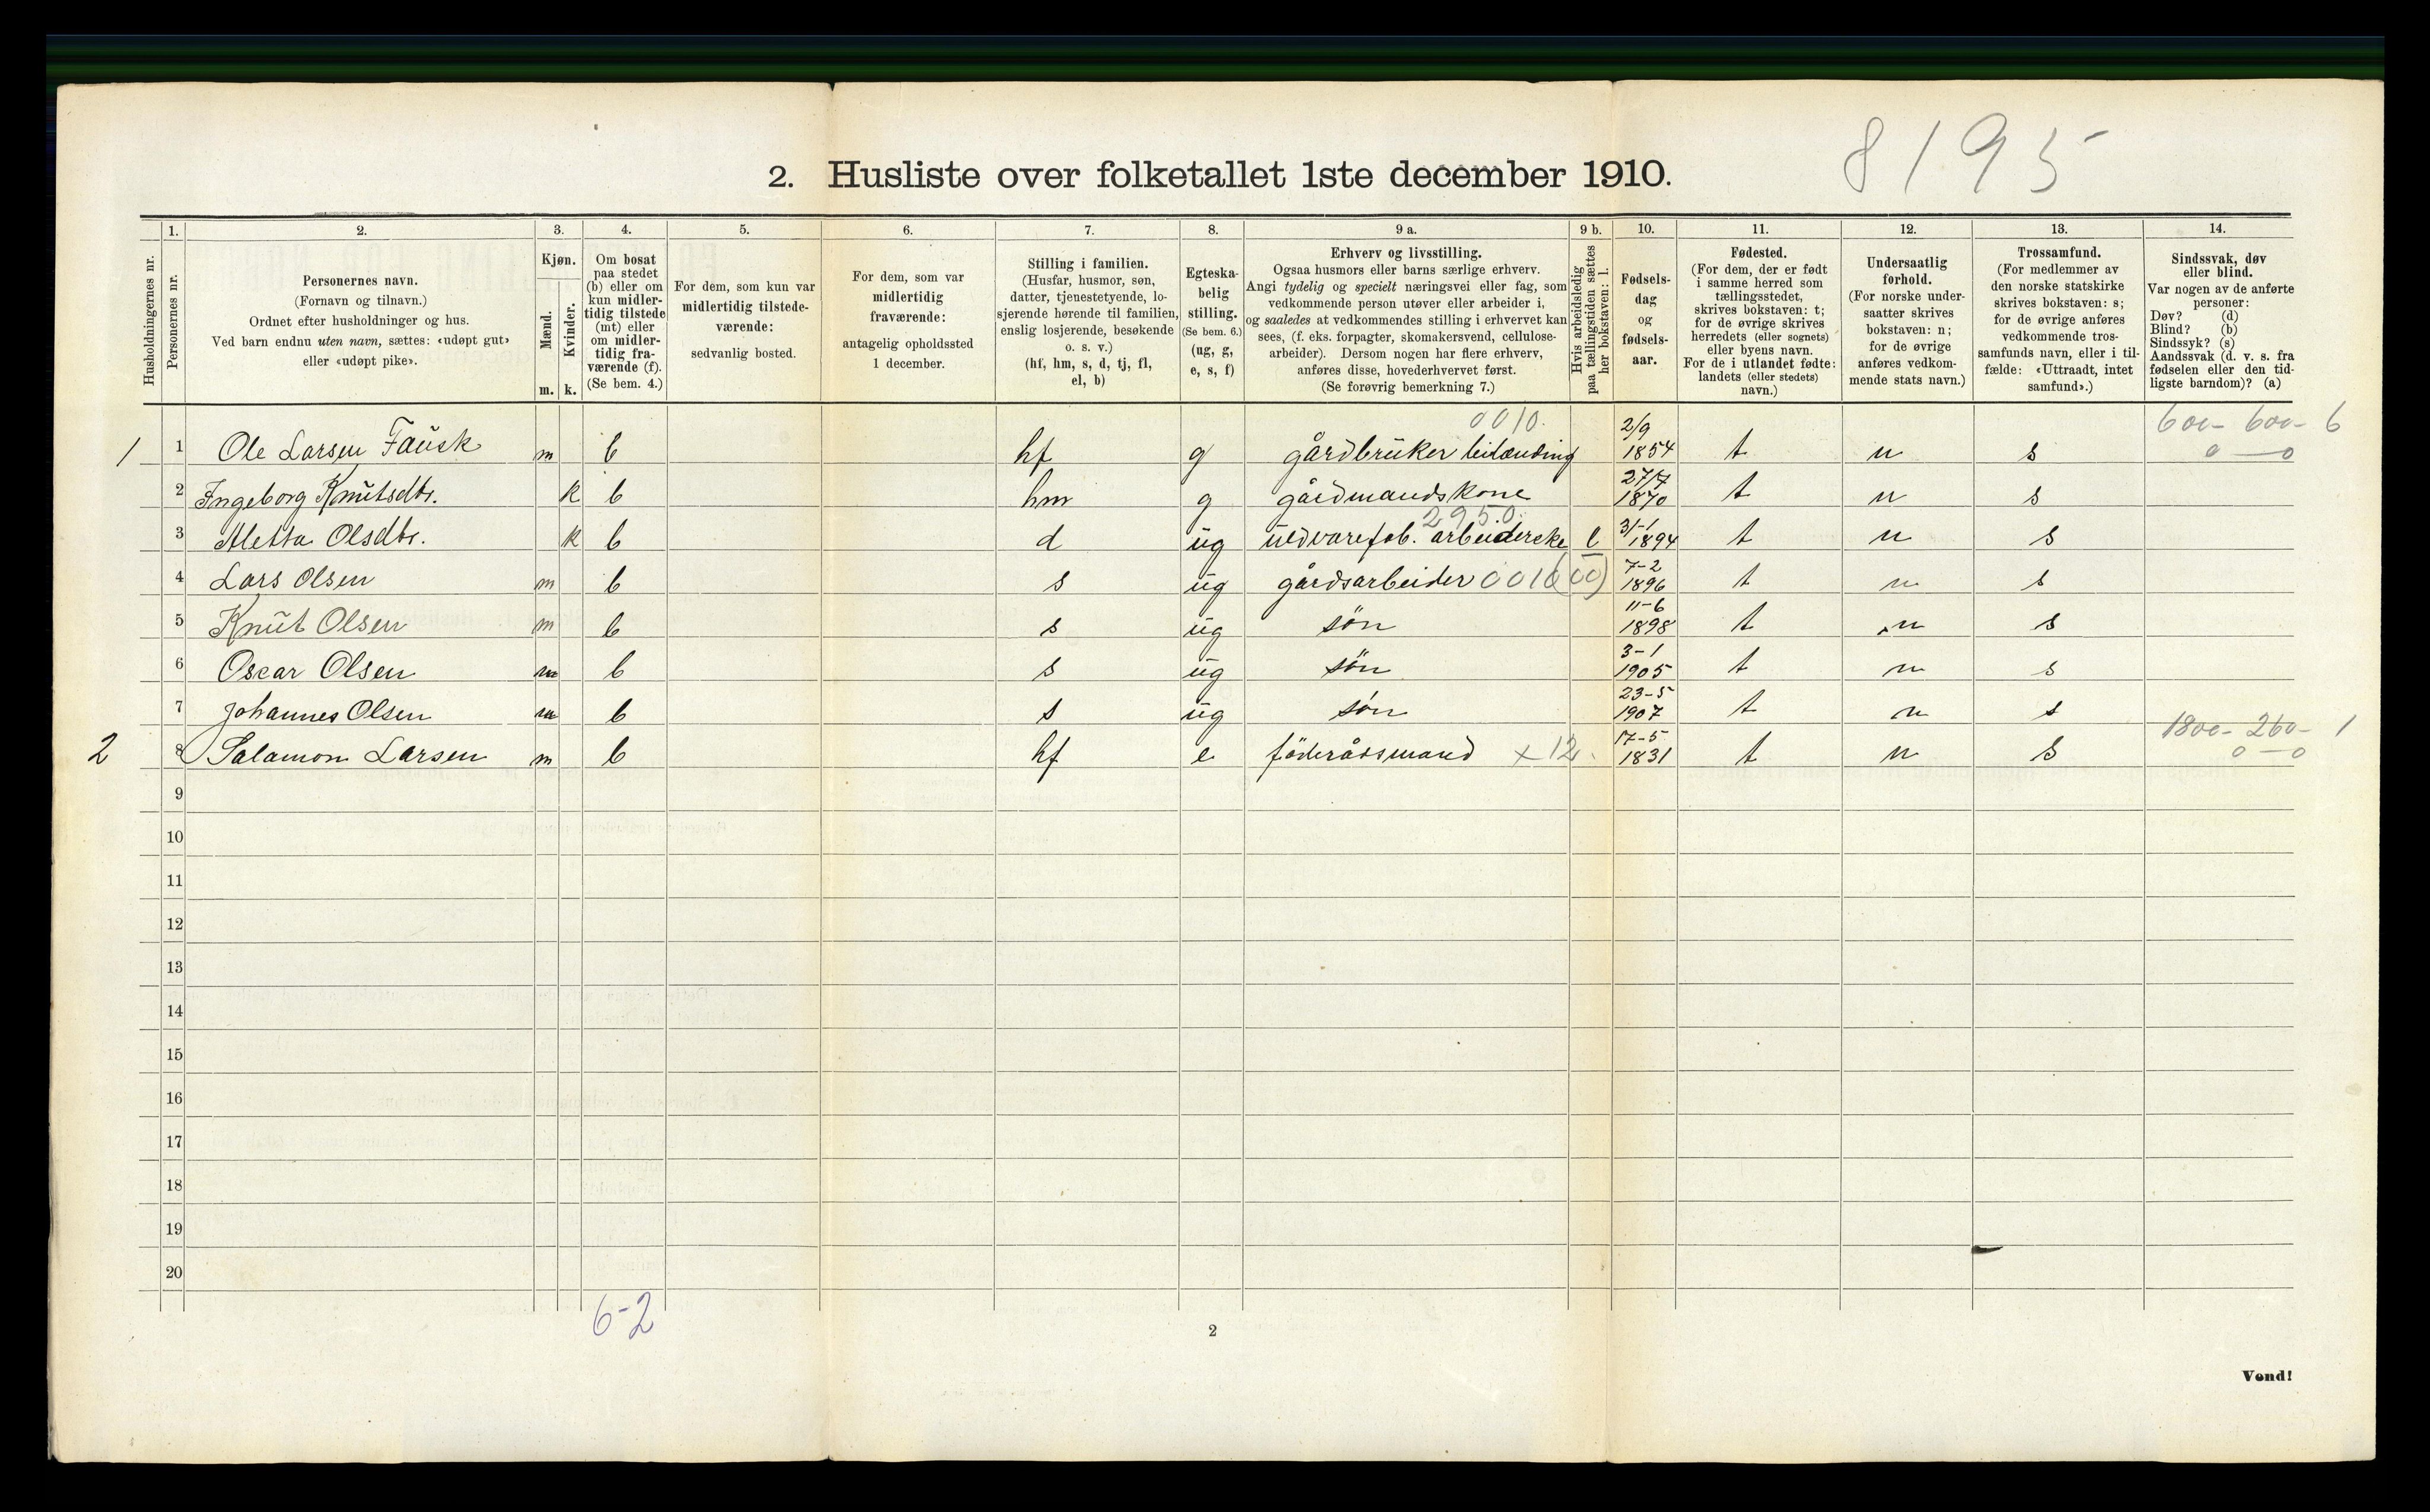 8195
2. Husliste over folketallet 1ste december 1910.
Husholdningernes nr.
1. Personernes nr.
2. Personernes navn. (Fornavn og tilnavn.) Ordnet efter husholdninger og hus. Ved barn endnu uten navn, sættes: «udøpt gut» eller «udøpt pike».
3. Kjøn. Mænd. m. Kvinder. k.
4. Om bosat paa stedet (b) eller om kun midlertidig tilstede (mt) eller om midlertidig fraværende (f). (Se bem. 4.)
5. For dem, som kun var midlertidig tilstedeværende: sedvanlig bosted.
6. For dem, som var midlertidig fraværende: antagelig opholdssted 1 december.
7. Stilling i familien. (Husfar, husmor, søn, datter, tjenestetyende, losjerende hørende til familien, enslig losjerende, besøkende o. s. v.) (hf, hm, s, d, tj, fl, el, b)
8. Egteskabelig stilling. (Se bem. 6.) (ug, g, e, s, f)
9 a. Erhverv og livsstilling. Ogsaa husmors eller barns særlige erhverv. Angi tydelig og specielt næringsvei eller fag, som vedkommende person utøver eller arbeider i, og saaledes at vedkommendes stilling i erhvervet kan sees, (f. eks. forpagter, skomakersvend, cellulosearbeider). Dersom nogen har flere erhverv, anføres disse, hovederhvervet først. (Se forøvrig bemerkning 7.)
9 b. Hvis arbeidsledig paa tællingstiden sættes her bokstaven: l.
10. Fødselsdag og fødselsaar.
11. Fødested. (For dem, der er født i samme herred som tællingsstedet, skrives bokstaven: t; for de øvrige skrives herredets (eller sognets) eller byens navn. For de i utlandet fødte: landets (eller stedets) navn.)
12. Undersaatlig forhold. (For norske undersaatter skrives bokstaven: n; for de øvrige anføres vedkommende stats navn.)
13. Trossamfund. (For medlemmer av den norske statskirke skrives bokstaven: s; for de øvrige anføres vedkommende trossamfunds navn, eller i tilfælde: «Uttraadt, intet samfund».)
14. Sindssvak, døv eller blind. Var nogen av de anførte personer: Døv? (d) Blind? (b) Sindssyk? (s) Aandssvak (d. v. s. fra fødselen eller den tidligste barndom)? (a)
1 1 Ole Larsen Fausk m b hf g gårdbruker leilænding 0010. 2/9 1854 t n s 600- 600- 6 0—0
2 Ingeborg Knutsdtr. k b hm g gårdmandskone 27/7 1870 t n s
3 Aletta Olsdtr. k b d ug uldvarefab. arbeiderske 2950. l 31-1 1894 t n s
4 Lars Olsen m b s ug gårdsarbeider 0010(00) 7-2 1896 t n s
5 Knut Olsen m b s ug søn 11-6 1898 t n s
6 Oscar Olsen m b s ug søn 3-1 1905 t n s
7 Johannes Olsen m b s ug søn 23-5 1907 t n s
2 8 Salamon Larsen m b hf e föderådsmand x 12. 17-5 1831 t n s 1800- 260- 1 0—0
9
10
11
12
13
14
15
16
17
18
19
20
6-2
2
Vend!